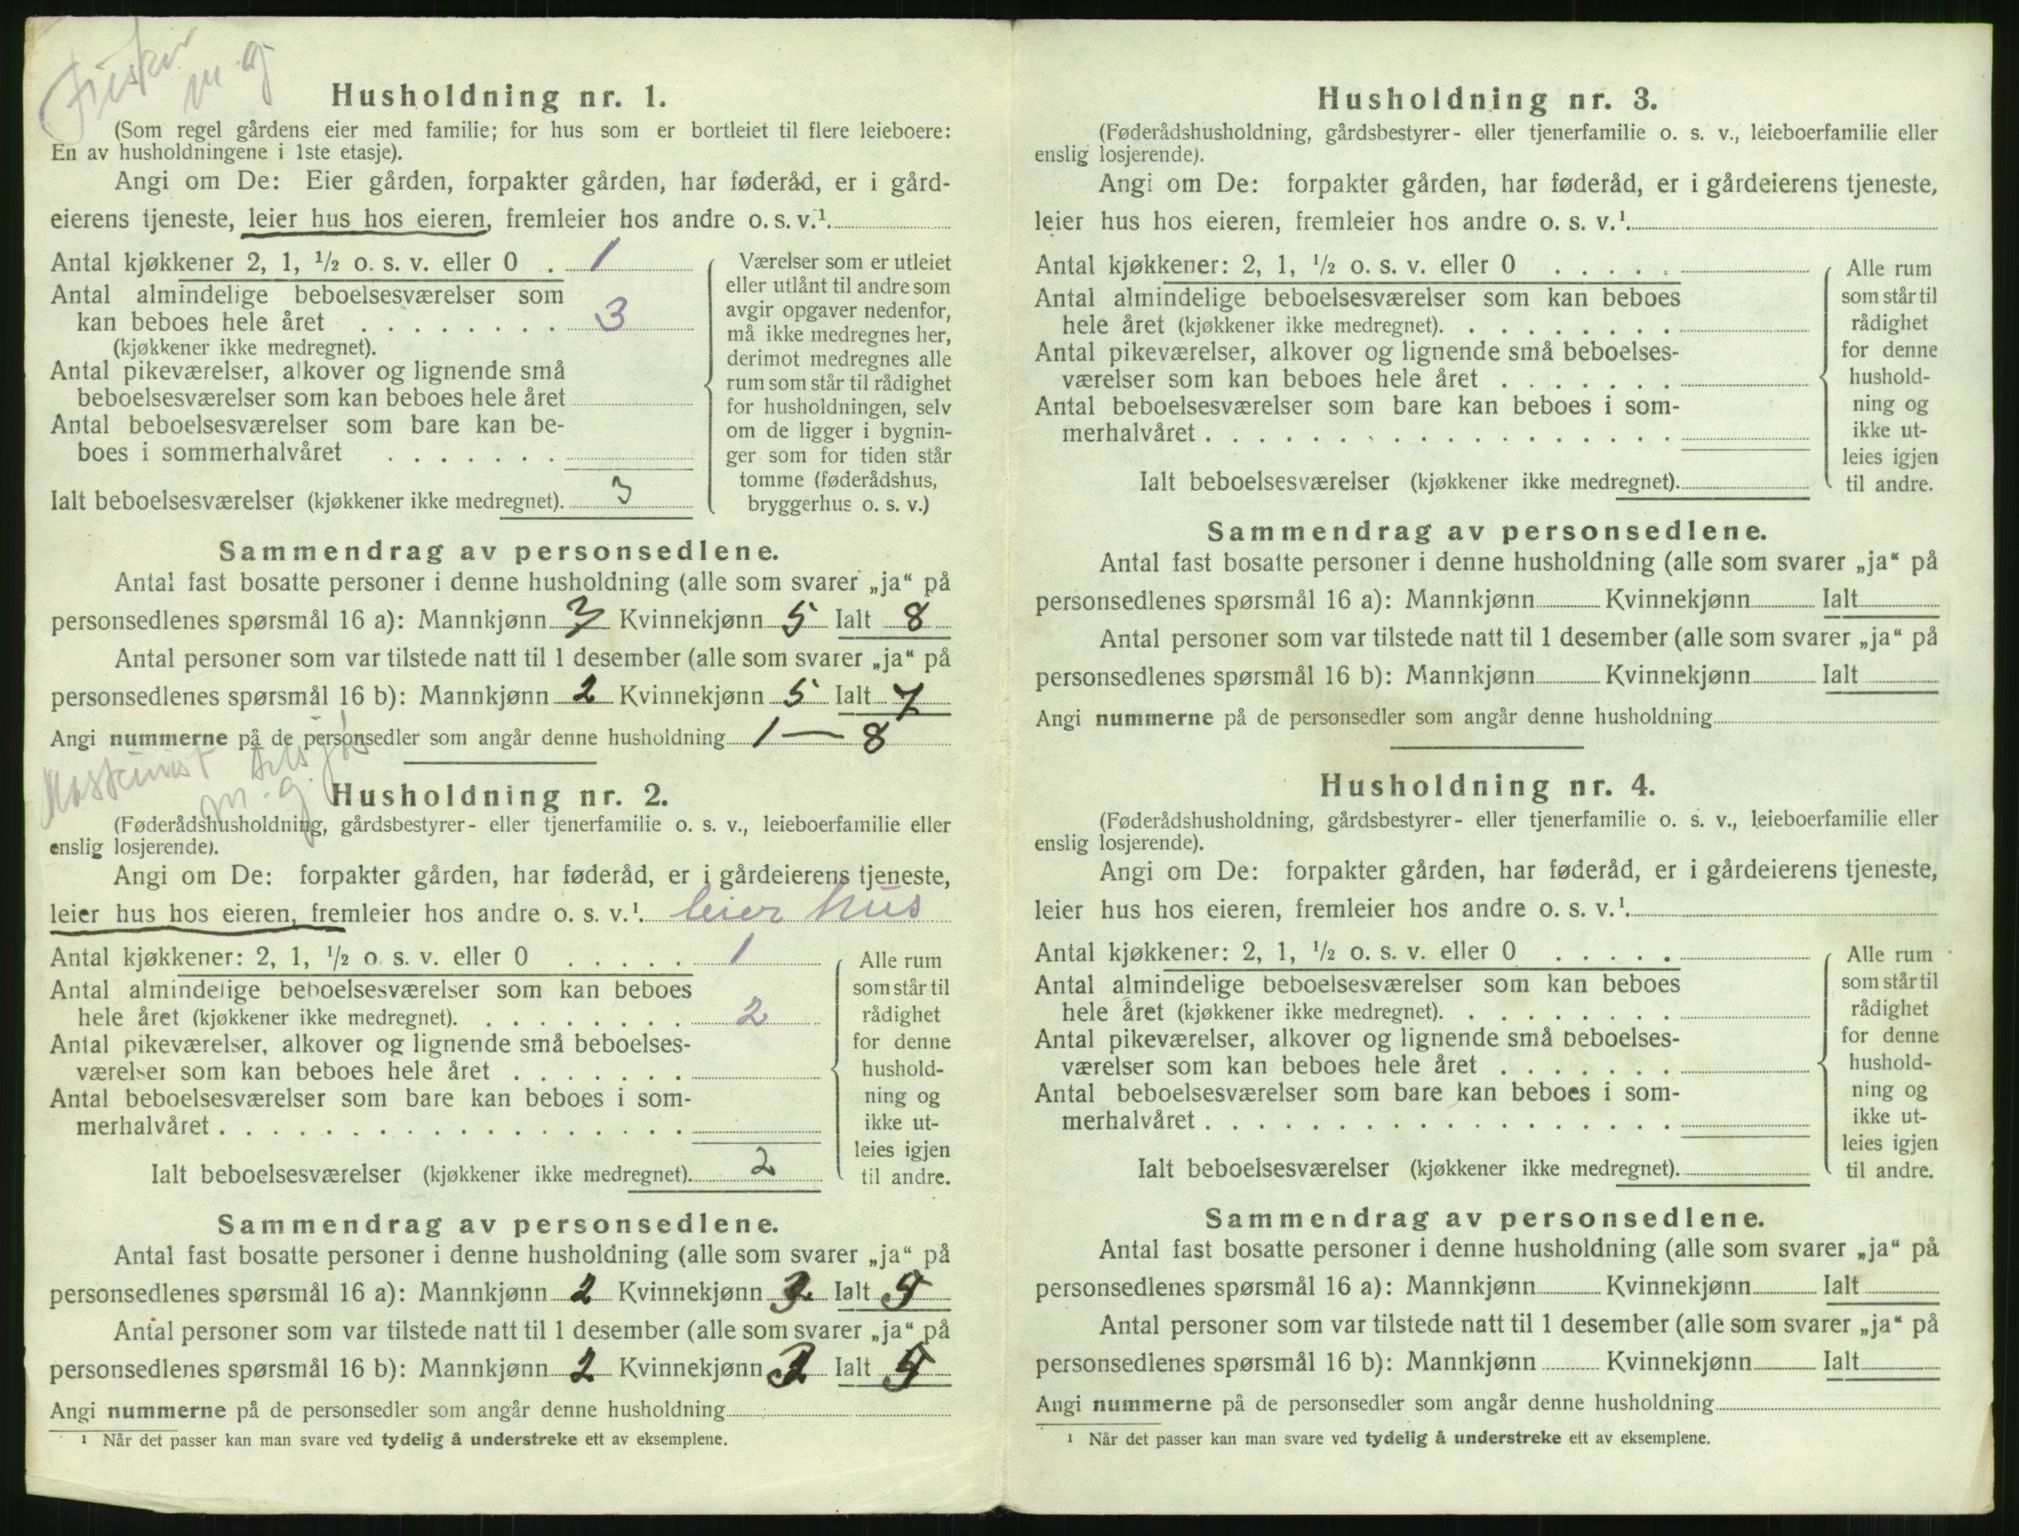 Fisker
m.g
Husholdning nr. 1.
(Som regel gårdens eier med familie; for hus som er bortleiet til flere leieboere:
En av husholdningene i 1ste etasje).
Angi om De: Eier gården, forpakter gården, har føderåd, er i gård-
eierens tjeneste, leier hus hos eieren, fremleier hos andre o. s. v.¹.
Antal kjøkkener 2, 1, ½ o. s. v. eller 0 . 1
Antal almindelige beboelsesværelser som
kan beboes hele året . . . . . . . . 3
(kjøkkener ikke medregnet).
Antal pikeværelser, alkover og lignende små
beboelsesværelser som kan beboes hele året
Antal beboelsesværelser som bare kan be-
boes i sommerhalvåret . . . . . . .
Ialt beboelsesværelser (kjøkkener ikke medregnet). 3
Værelser som er utleiet
eller utlånt til andre som
avgir opgaver nedenfor,
må ikke medregnes her,
derimot medregnes alle
rum som står til rådighet
for husholdningen, selv
om de ligger i bygnin-
ger som for tiden står
tomme (føderådshus,
bryggerhus o. s. v.)
Sammendrag av personsedlene.
Antal fast bosatte personer i denne husholdning (alle som svarer „ja“ på
personsedlenes spørsmål 16 a): Mannkjønn 3 Kvinnekjønn 5 Ialt 8
Antal personer som var tilstede natt til 1 desember (alle som svarer „ja“ på
personsedlenes spørsmål 16 b): Mannkjønn 2 Kvinnekjønn 5 Ialt 7
Angi nummerne på de personsedler som angår denne husholdning 1 — 8
Maskinist
m.g.
Husholdning nr. 2.
(Føderådshusholdning, gårdsbestyrer- eller tjenerfamilie o. s. v., leieboerfamilie eller
enslig losjerende).
Angi om De: forpakter gården, har føderåd, er i gårdeierens tjeneste,
leier hus hos eieren, fremleier hos andre o. s. v.¹. leier hus
Antal kjøkkener: 2, 1, ½ o. s. v. eller 0 . . . . . 1
Antal almindelige beboelsesværelser som kan beboes
hele året (kjøkkener ikke medregnet). . . . . . . . . 2
Antal pikeværelser, alkover og lignende små beboelses-
værelser som kan beboes hele året . . . . . . .
Antal beboelsesværelser som bare kan beboes i som-
merhalvåret . . . . . . . . . . . . . . . . . .
Ialt beboelsesværelser (kjøkkener ikke medregnet). 2
Alle rum
som står til
rådighet
for denne
hushold-
ning og
ikke ut-
leies igjen
til andre.
Sammendrag av personsedlene.
Antal fast bosatte personer i denne husholdning (alle som svarer „ja“ på
personsedlenes spørsmål 16 a): Mannkjønn 2 Kvinnekjønn 3 Ialt 5
Antal personer som var tilstede natt til 1 desember (alle som svarer „ja“ på
personsedlenes spørsmål 16 b): Mannkjønn 2 Kvinnekjønn 3 Ialt 5
Angi nummerne på de personsedler som angår denne husholdning
¹ Når det passer kan man svare ved tydelig å understreke ett av eksemplene.
Husholdning nr. 3.
(Føderådshusholdning, gårdsbestyrer- eller tjenerfamilie o. s. v., leieboerfamilie eller
enslig losjerende).
Angi om De: forpakter gården, har føderåd, er i gårdeierens tjeneste,
leier hus hos eieren, fremleier hos andre o. s. v.¹.
Antal kjøkkener: 2, 1, ½ o. s. v. eller 0 . . . . .
Antal almindelige beboelsesværelser som kan beboes
hele året (kjøkkener ikke medregnet). . . . . . . . .
Antal pikeværelser, alkover og lignende små beboelses-
værelser som kan beboes hele året . . . . . . .
Antal beboelsesværelser som bare kan beboes i som-
merhalvåret . . . . . . . . . . . . . . . . . .
Ialt beboelsesværelser (kjøkkener ikke medregnet).
Alle rum
som står til
rådighet
for denne
hushold-
ning og
ikke ut-
leies igjen
til andre.
Sammendrag av personsedlene.
Antal fast bosatte personer i denne husholdning (alle som svarer „ja“ på
personsedlenes spørsmål 16 a): Mannkjønn Kvinnekjønn Ialt
Antal personer som var tilstede natt til 1 desember (alle som svarer „ja“ på
personsedlenes spørsmål 16 b): Mannkjønn Kvinnekjønn Ialt
Angi nummerne på de personsedler som angår denne husholdning
Husholdning nr. 4.
(Føderådshusholdning, gårdsbestyrer- eller tjenerfamilie o. s. v., leieboerfamilie eller
enslig losjerende).
Angi om De: forpakter gården, har føderåd, er i gårdeierens tjeneste,
leier hus hos eieren, fremleier hos andre o. s. v.¹.
Antal kjøkkener: 2, 1, ½ o. s. v. eller 0 . . . . .
Antal almindelige beboelsesværelser som kan beboes
hele året (kjøkkener ikke medregnet). . . . . . . . .
Antal pikeværelser, alkover og lignende små beboelses-
værelser som kan beboes hele året . . . . . . .
Antal beboelsesværelser som bare kan beboes i som-
merhalvåret . . . . . . . . . . . . . . . . . .
Ialt beboelsesværelser (kjøkkener ikke medregnet).
Alle rum
som står til
rådighet
for denne
hushold-
ning og
ikke ut-
leies igjen
til andre.
Sammendrag av personsedlene.
Antal fast bosatte personer i denne husholdning (alle som svarer „ja“ på
personsedlenes spørsmål 16 a): Mannkjønn Kvinnekjønn Ialt
Antal personer som var tilstede natt til 1 desember (alle som svarer „ja“ på
personsedlenes spørsmål 16 b): Mannkjønn Kvinnekjønn Ialt
Angi nummerne på de personsedler som angår denne husholdning
¹ Når det passer kan man svare ved tydelig å understreke ett av eksemplene.